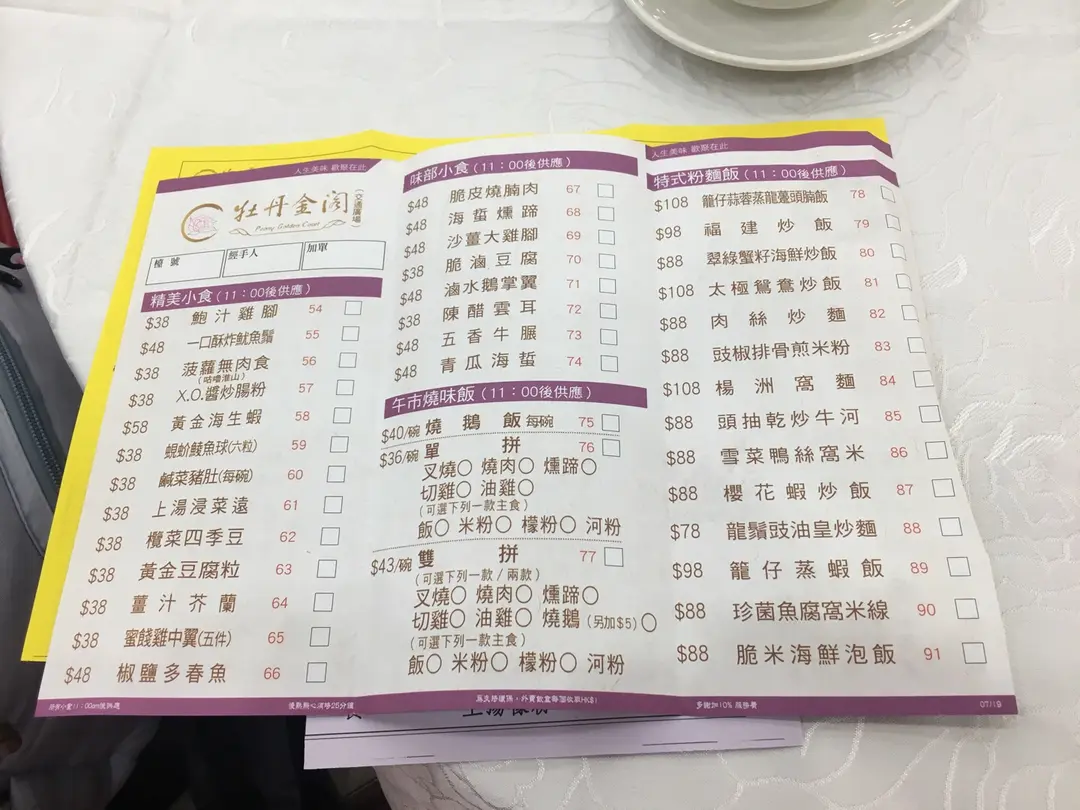 人生美味 歡聚在此
牡丹金閣
(交通廣場)
Peony Golden Court
檯號
經手人
加單
精美小食(11:00後供應)
$38 鮑汁雞腳 54
$48 一口酥炸魷魚鬚 55
$38 菠蘿無肉食 56
(咕嚕淮山)
$38 X.O.醬炒腸粉 57
$58 黃金海生蝦 58
$38 蜆蚧鯪魚球(六粒) 59
$38 鹹菜豬肚(每碗) 60
$38 上湯浸菜遠 61
$38 欖菜四季豆 62
$38 黃金豆腐粒 63
$38 薑汁芥蘭 64
$38 蜜餞雞中翼(五件) 65
$48 椒鹽多春魚 66
味部小食(11:00後供應)
$48 脆皮燒腩肉 67
$48 海蜇燻蹄 68
$48 沙薑大雞腳 69
$38 脆滷豆腐 70
$48 滷水鵝掌翼 71
$38 陳醋雲耳 72
$48 五香牛𦟌 73
$48 青瓜海蜇 74
午市燒味飯(11:00後供應)
$40/碗 燒鵝飯每碗 75
$36/碗 單拼 76
叉燒 燒肉 燻蹄
切雞 油雞
(可選下列一款主食)
飯 米粉 檬粉 河粉
$43/碗 雙拼 77
(可選下列一款/兩款)
叉燒 燒肉 燻蹄
切雞 油雞 燒鵝(另加$5)
(可選下列一款主食)
飯 米粉 檬粉 河粉
人生美味 歡聚在此
特式粉麵飯(11:00後供應)
$108 籠仔蒜蓉蒸龍躉頭腩飯 78
$98 福建炒飯 79
$88 翠綠蟹籽海鮮炒飯 80
$108 太極鴛鴦炒飯 81
$88 肉絲炒麵 82
$88 豉椒排骨煎米粉 83
$108 楊洲窩麵 84
$88 頭抽乾炒牛河 85
$88 雪菜鴨絲窩米 86
$88 櫻花蝦炒飯 87
$78 龍鬚豉油皇炒麵 88
$98 籠仔蒸蝦飯 89
$88 珍菌魚腐窩米線 90
$88 脆米海鮮泡飯 91
多謝加10%服務費
07/19